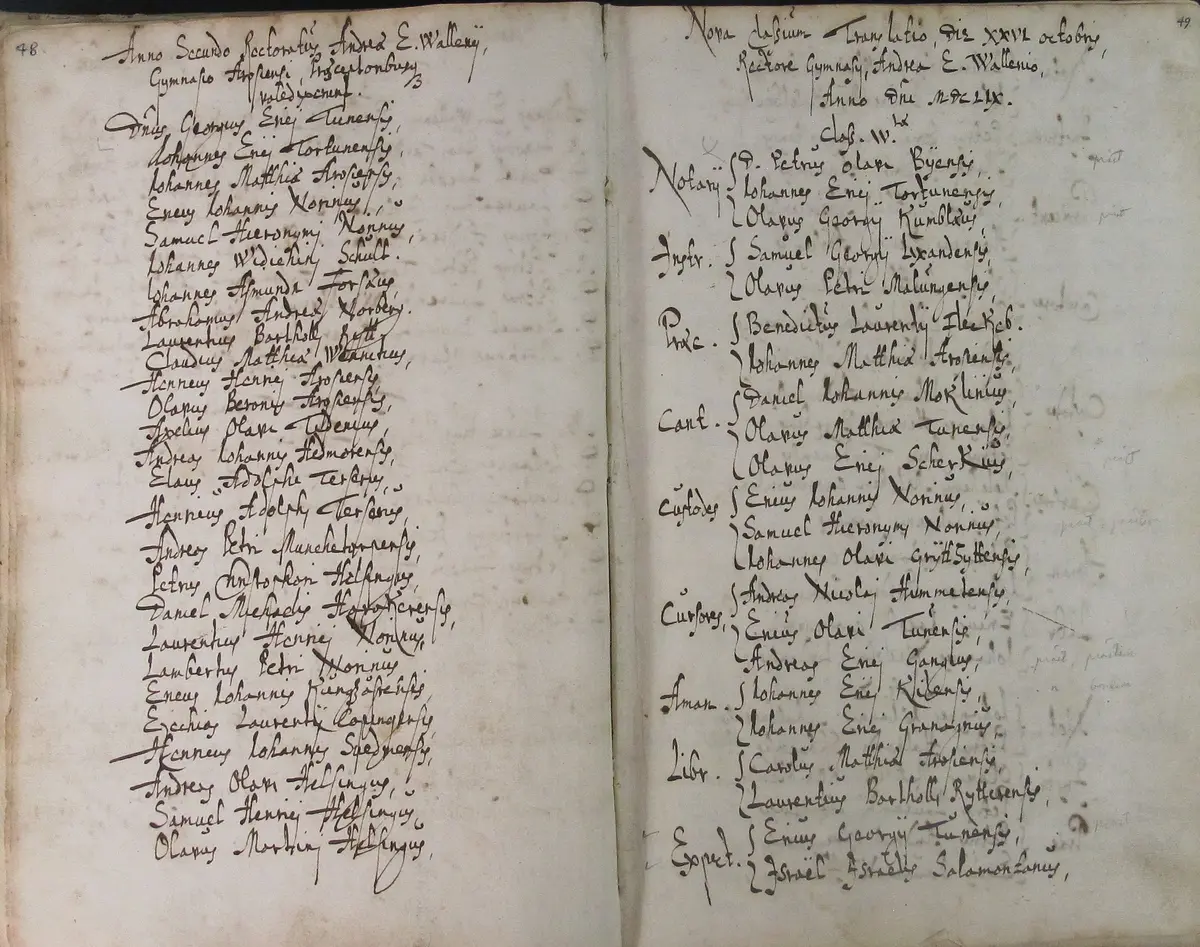 48
Anno Secundo Rectoratus Andreæ E. Wallenij,
Gymnasio Arosiensi,
valedixerunt.
Dnus Georgius Erici Tunensis,
Iohannes Erici Tortunensis,
Iohannes Matthiæ Arosiensis,
Ericus Iohannis Noricius,
Samuel Hieronymi Noricius,
Iohannes Schult.
Iohannes Asmundi
Abrahamus Andreæ Norberg.
Laurentius Barthollj Rytt.
Claudius Matthiæ
Henricus Henrici Arosiensis,
Olavus Beronis Arosiensis,
Axelius Olavi
Andreas Iohannis Hedmorensis,
Elavs Adolphi Terserus,
Henricus Adolphi Terserus,
Andreas Petri
Petrus Christophori Helsingus,
Daniel Michaelis
Laurentius Henrici Noricius,
Lambertus Petri Noricius
Ericus Iohannis
Laurentij Copingensis,
Henricus Iohannis
Andreas Olavi Helsingus,
Samuel Henrici Helsingus
Olavus Martini Helsingus,
49
Nova Classium Translatio, Die XXVI octobris,
Rectore Gymnasij, Andrea E. Wallenio,
Anno Dni MDCLIX.
Class. IV.ta
Notarij D. Petrus Olavi Byensis,
Iohannes Erici Tortunensis,
Olavus Georgij Kumblæus,
Instr. Samuel Georgij Lixandensis,
Olavus Petri Malungensis,
Præc. Benedictus Laurentij Fleckeb.
Iohannes Matthiæ Arosiensis,
Cant. Daniel Iohannis Moklinius,
Olavus Matthiæ Tunensis,
Olavus Erici
Custodes Ericus Iohannis Noricius,
Samuel Hieronymi Noricius,
Iohannes Olavi Grythyttensis,
Cursores, Andreas Nicolai Himmetensis,
Ericus Olavi Tunensis,
Andreas Erici Gangius,
Aman. Iohannes Erici Kilensis,
Iohannes Erici
Libr. Carolus Matthiæ Arosiensis,
Laurentius Barthollj Rytterensis,
Expect. Ericus Georgij Tunensis,
Israël Israëlis Salamontanus,